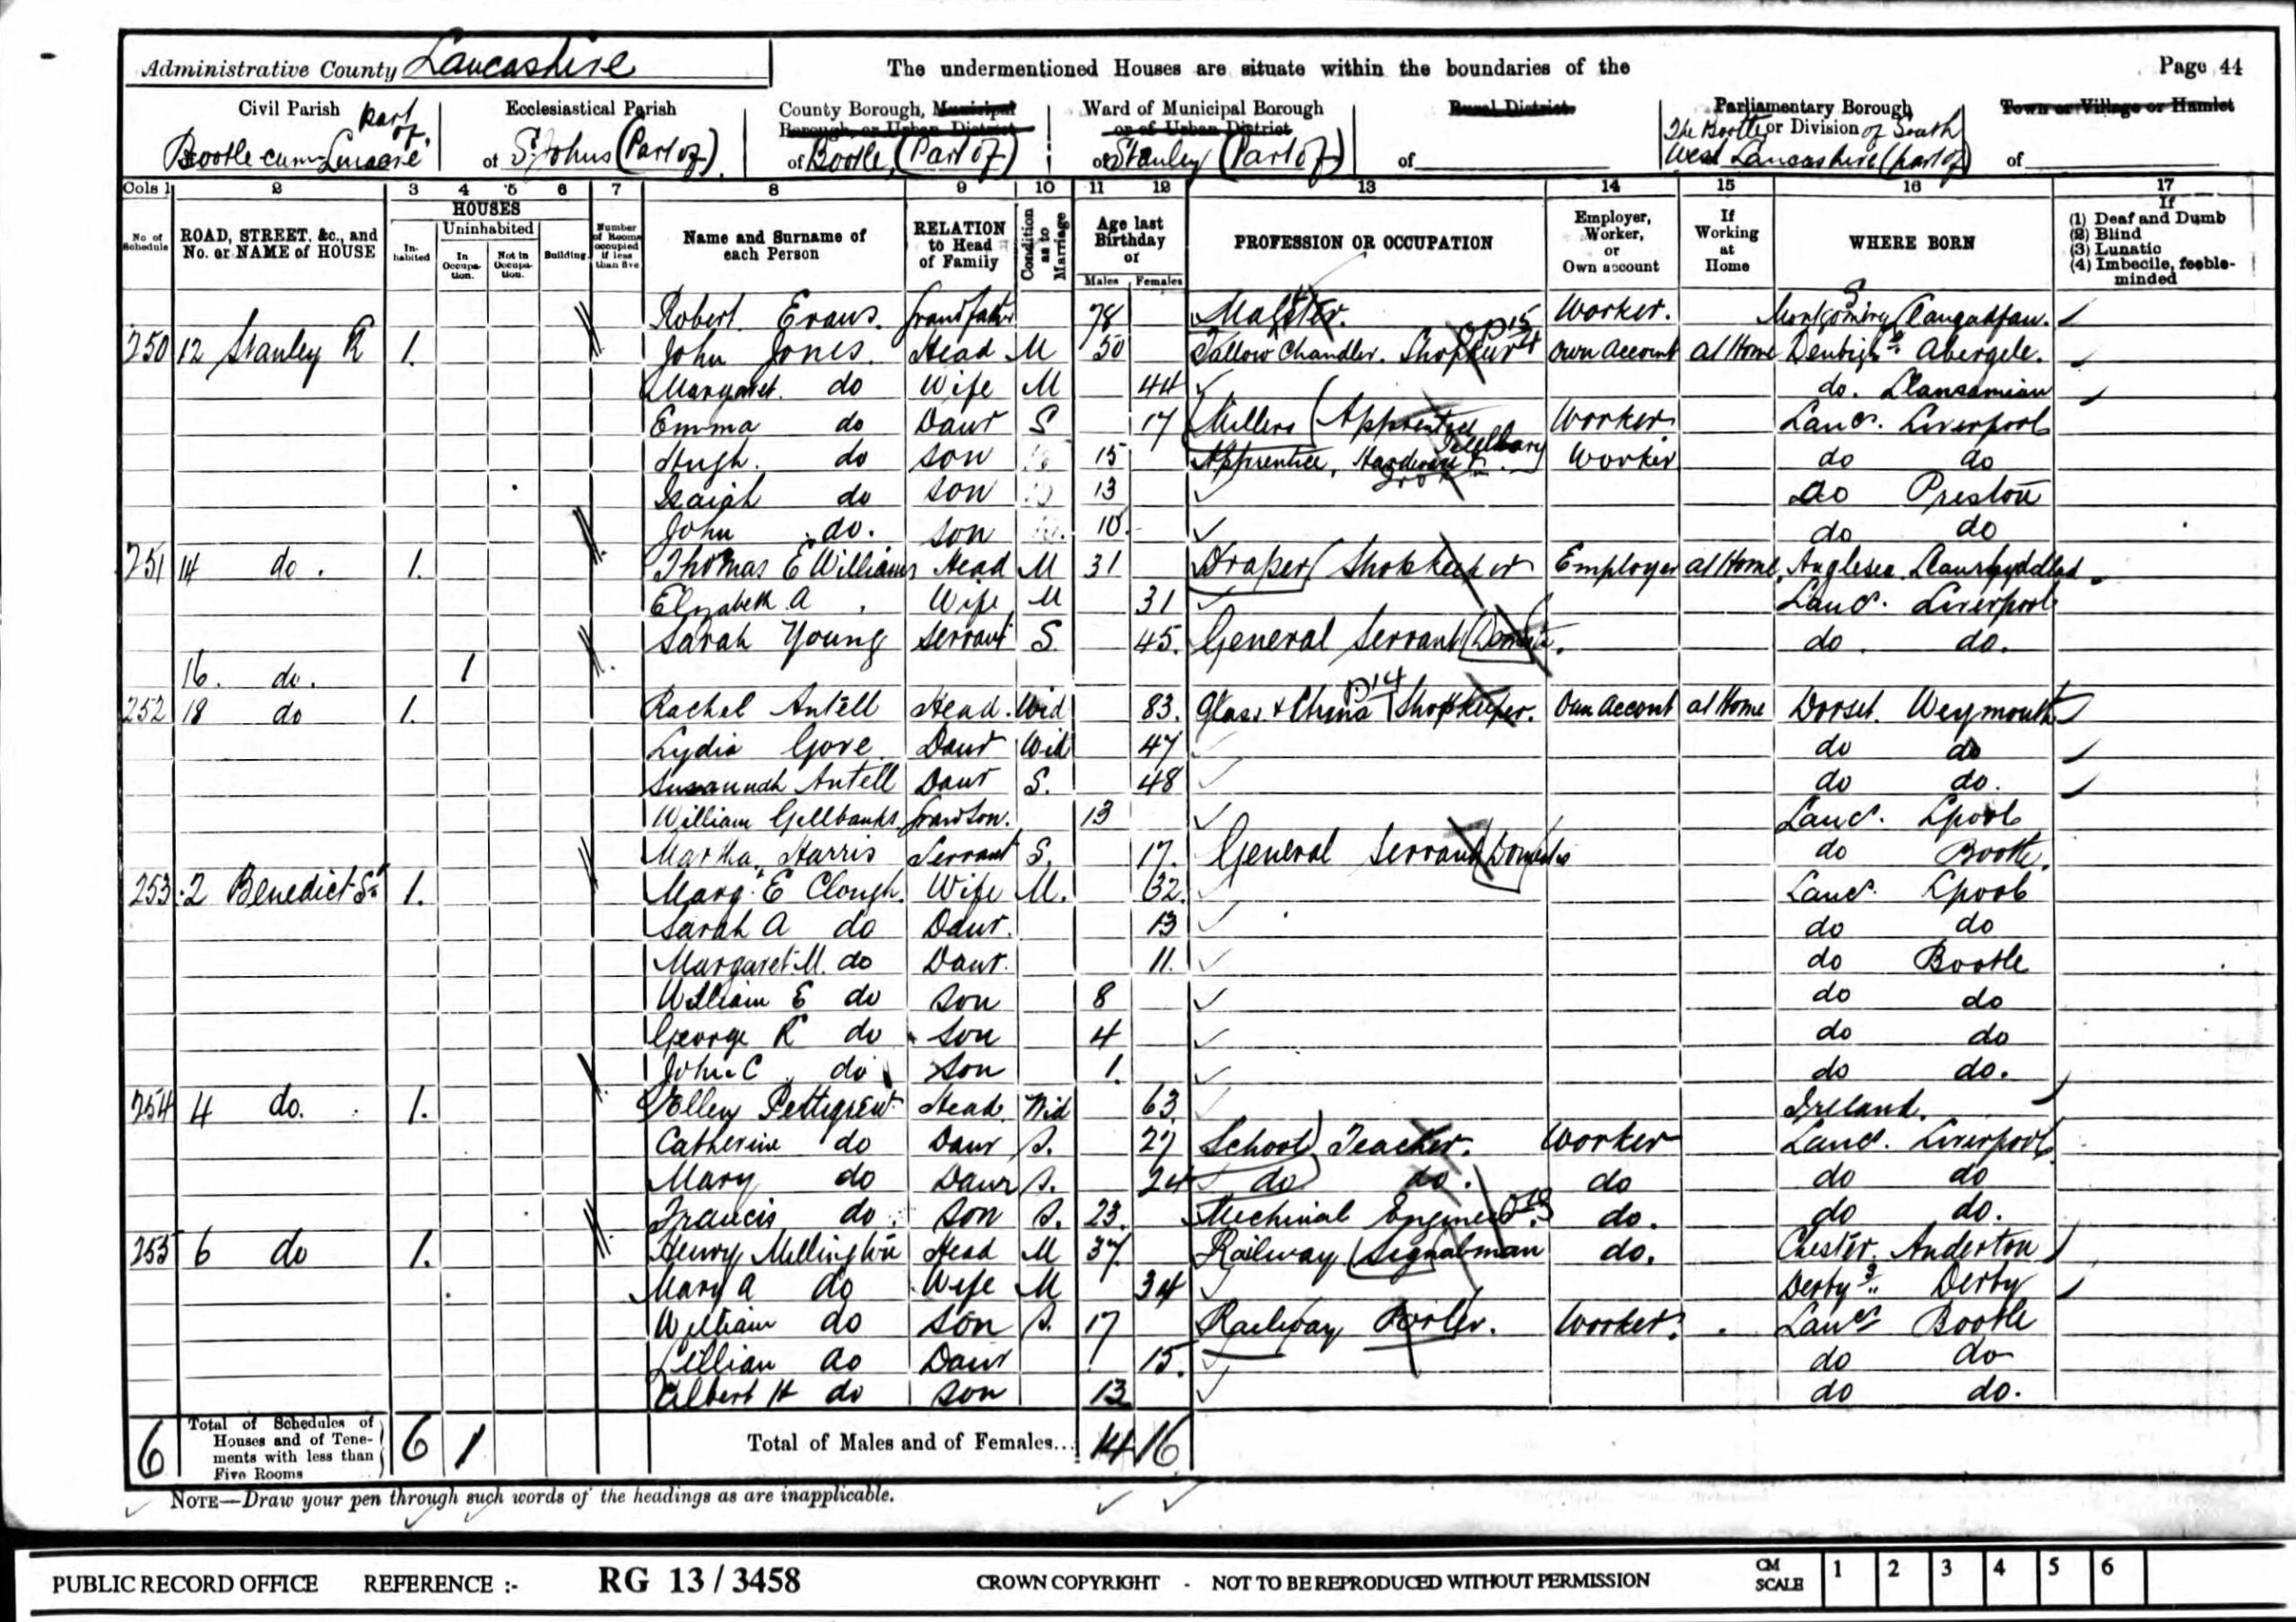 Administrative County Lancashire
The undermentioned Houses are situate within the boundaries of the
Page 44
Civil Parish part of Bootle cum Linacre
Ecclesiastical Parish of St Johns (Part of)
County Borough, Municipal Borough, or Urban District of Bootle, (Part of)
Ward of Municipal Borough or of Urban District of Stanley (Part of)
Rural District of
Parliamentary Borough or Division of The Bootle of South West Lancashire (part of)
Town or Village or Hamlet of
Cols 1 2 3 4 5 6 7 8 9 10 11 12 13 14 15 16 17
No. of Schedule
ROAD, STREET, &c., and No. or NAME of HOUSE
HOUSES
Inhabited
Uninhabited
In Occupation.
Not in Occupation.
Building.
Number of Rooms occupied if less than five
Name and Surname of each Person
RELATION to Head of Family
Condition as to Marriage
Age last Birthday or
Males Females
PROFESSION OR OCCUPATION
Employer, Worker, or Own account
If Working at Home
WHERE BORN
If
(1) Deaf and Dumb
(2) Blind
(3) Lunatic
(4) Imbecile, feeble-minded
Robert Evans. Grandfather 78 Worker. Montgomery
250 12 Stanley Rd 1. John Jones. Head M 50 Tallow Chandler. Shopkeeper Own Account at Home Denbigh Abergele.
Margaret. do Wife M 44 do.
Emma do Daur S 17 Millers (Apprentice Worker Lancs. Liverpool
Hugh. do son 15 Apprentice, Worker do do
Isaiah do son 13 do Preston
John do. son 10. do do
251 14 do. 1. Thomas E Williams Head M 31 Draper (Shopkeeper Employer at Home, Anglesea
Elizabeth A Wife M 31 Lancs. Liverpool
Sarah Young Servant S. 45. General Servant (Domestic. do. do.
16. do. 1
252 18 do 1. Rachel Antell Head. Wid 83. Glass & China Shopkeeper. Own Account at Home Dorset. Weymouth
Lydia Gove Daur Wid 47 do do
Susannah Antell Daur S. 48 do do.
William Gellbanks Grandson. 13 Lancs. Lpool
Martha Harris Servant S. 17. General Servant (Domestic do Bootle.
253 2 Benedict St 1. Marg. E Clough. Wife M. 32. Lancs. Lpool
Sarah A do Daur. 13 do do
Margaret M. do Daur. 11. do Bootle
William E do son 8 do do
George R do son 4 do do
John C do son 1. do do.
254 4 do. 1. Ellen Pettigrew Head Wid 63 Ireland.
Catherine do Daur S. 27 School Teacher. Worker Lancs. Liverpool
Mary do Daur S. 24 do do. do do do
Francis do. son S. 23. Mechinal Engineer. do. do do.
255 6 do 1. Henry Millington Head M 37. Railway (Signalman do. Chester. Anderton
Mary A do Wife M 34 Derby Derby
William do son S. 17 Railway Porter. Worker. Lancs Bootle
Lillian do Daur 15. do do
Albert H do son 13 do do.
6 Total of Schedules of Houses and of Tenements with less than Five Rooms 6 1 Total of Males and of Females... 14 16
NOTE—Draw your pen through such words of the headings as are inapplicable.
PUBLIC RECORD OFFICE REFERENCE :- RG 13 / 3458 CROWN COPYRIGHT - NOT TO BE REPRODUCED WITHOUT PERMISSION CM SCALE 1 2 3 4 5 6